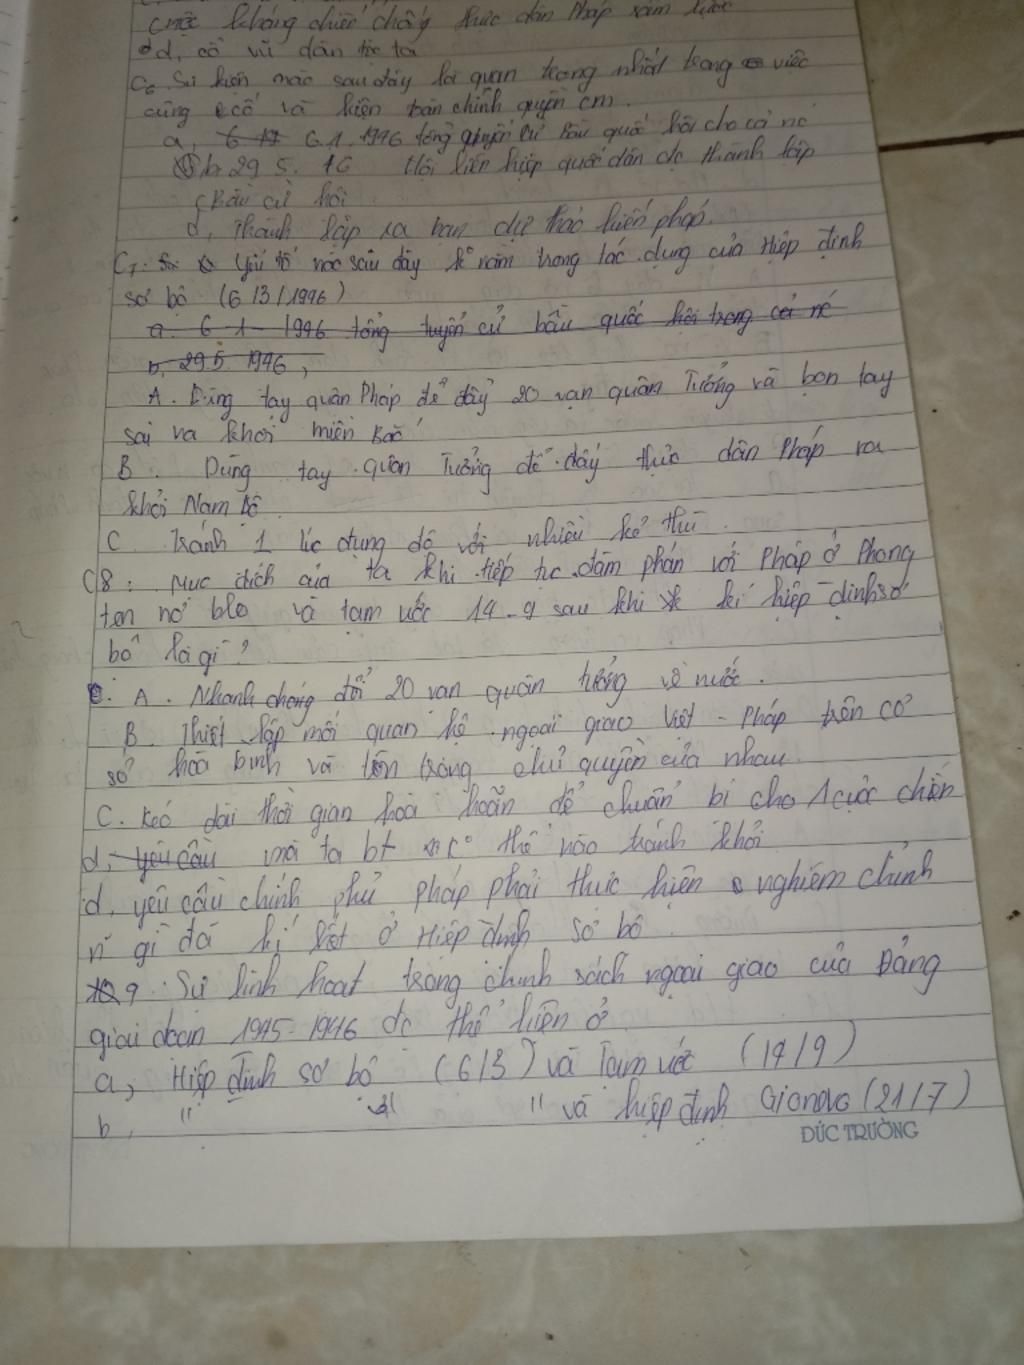 cuộc kháng chiến chống thực dân Pháp xâm lược
d, cổ vũ dân tộc ta
C6 Sự kiện nào sau đây là quan trọng nhất trong việc
củng cố và kiện toàn chính quyền cm.
a, 6.1.1946 tổng tuyển cử bầu quốc hội cho cả nc
b, 29 5. 46 Hội liên hiệp quốc dân đc thành lập
c, Bầu cử hội
d, Thành lập ra ban dự thảo hiến pháp.
C7. Yếu tố nào sau đây k nằm trong tác dụng của Hiệp định
sơ bộ (6/3/1946)
a. 6-1-1946 tổng tuyển cử bầu quốc hội trong cả nc
b, 29.5.1946,
A. Dùng tay quân Pháp để đẩy 20 vạn quân Tưởng và bọn tay
sai ra khỏi miền Bắc
B. Dùng tay quân Tưởng để đẩy thực dân Pháp ra
khỏi Nam Bộ
C. Tránh 1 lúc đụng độ với nhiều kẻ thù.
C8: Mục đích của ta khi tiếp tục đàm phán với Pháp ở Phong
ten nơ blo và tạm ước 14-9 sau khi kí hiệp định sơ
bộ là gì?
A. Nhanh chóng đổi 20 vạn quân tưởng về nước.
B. Thiết lập mối quan hệ ngoại giao Việt - Pháp trên cơ
sở hòa bình và tôn trọng chủ quyền của nhau.
C. Kéo dài thời gian hòa hoãn để chuẩn bị cho 1 cuộc chiến
d, yêu cầu mà ta bt k thể nào tránh khỏi
d, yêu cầu chính phủ pháp phải thực hiện nghiêm chỉnh
n~ gì đã kí kết ở Hiệp định sơ bộ.
9. Sự linh hoạt trong chính sách ngoại giao của Đảng
giai đoạn 1945-1946 đc thể hiện ở
a, Hiệp định sơ bộ (6/3) và Tạm ước (14/9)
b, " " và hiệp định Gionevo (21/7)
ĐỨC TRƯỜNG